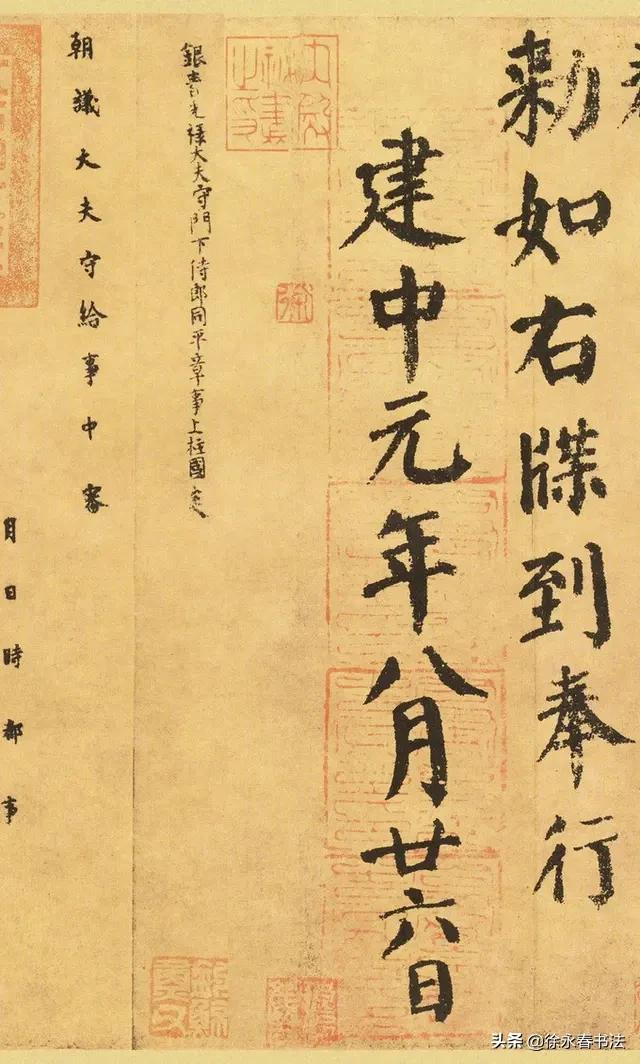 勅如右牒到奉行
建中元年八月廿六日
銀青光禄大夫守門下侍郎同平章事上柱國
朝議大夫守給事中審
月日時都事
头条 @徐永春书法